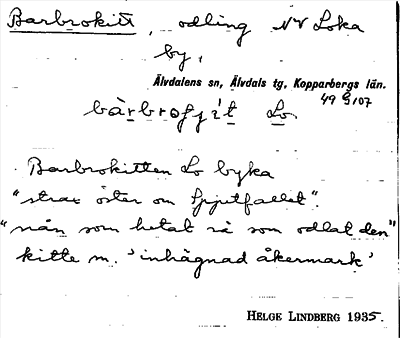 Barbrokitt, odling NV Loka
by,
Älvdalens sn, Älvdals tg, Kopparbergs län.
49 G/07
bàrbrofjít Lo.
Barbrokitten Lo byka
"strax öster om Spjutfallet".
"nån som hetat så som odlat den"
kitte m. 'inhägnad åkermark'
HELGE LINDBERG 1935.